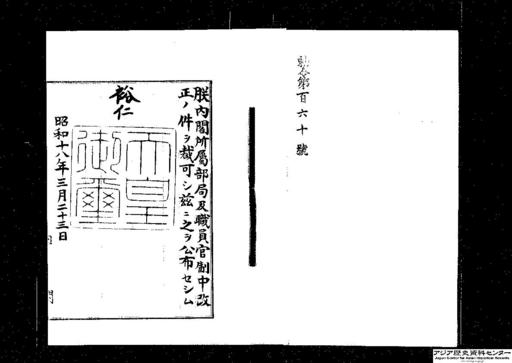 勅令第百六十號
朕內閣所屬部局及職員官制中改
正ノ件ヲ裁可シ玆ニ之ヲ公布セシム
裕仁
天皇
御璽
昭和十八年三月二十三日
アジア歴史資料センター
Japan Center for Asian Historical Records